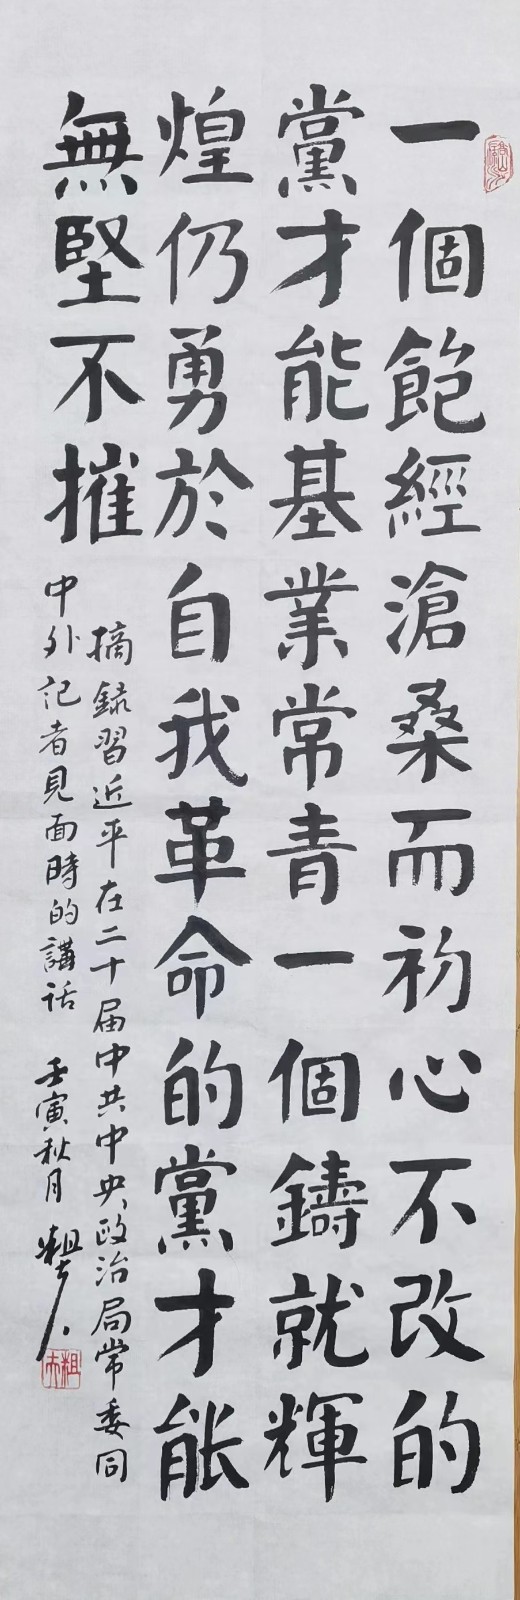 一個飽經滄桑而初心不改的
黨才能基業常青一個鑄就輝
煌仍勇於自我革命的黨才能
無堅不摧
摘錄習近平在二十届中共中央政治局常委同
中外記者見面時的講话 壬寅秋月